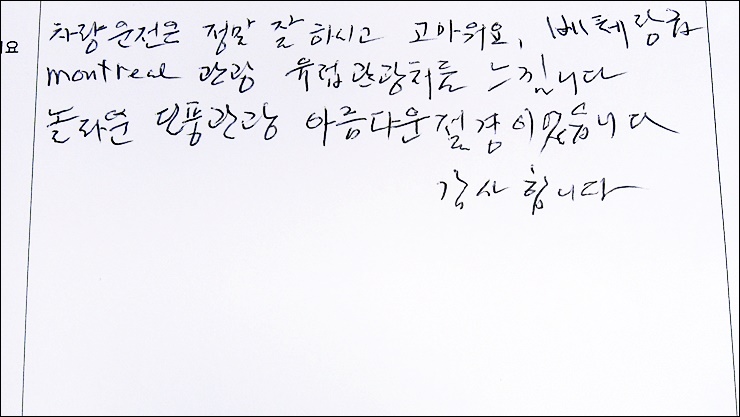 차량운전은 정말 잘 하시고 고마워요, 베테랑급
montreal 관광 유럽관광처름 느낌니다
놀라운 단풍관광 아름다운절경이었습니다
감사 합니다
요